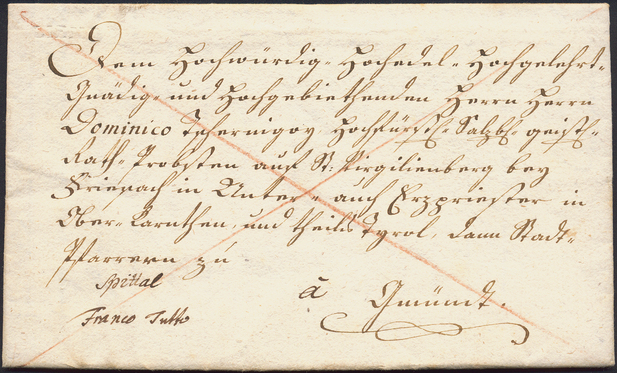 Dem Hochwürdig- Hochedel- Hochgelehrt-
Gnädig- und Hochgebiethenden Herrn Herrn
Dominico Tschernigoy Hochfürstl- Salzb- geistl-
Rath- Probsten auf St: Virgilienberg bey
Friesach in Unter- auch Erzpriester in
Ober- Carnthen, und theils Tyrol, dann Stadt-
Pfarrern zu
Spittal
Franco Tutto
à Gmündt.